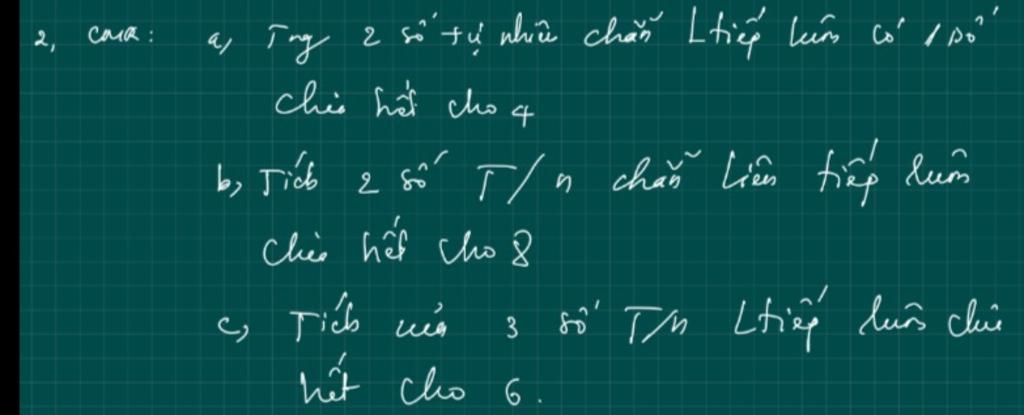 2, CMR: a, Tng 2 số tự nhiên chẵn Ltiếp luôn có 1 số
chia hết cho 4
b, Tích 2 số T/n chẵn liên tiếp luôn
chia hết cho 8
c, Tích của 3 số T/n Ltiếp luôn chia
hết cho 6.